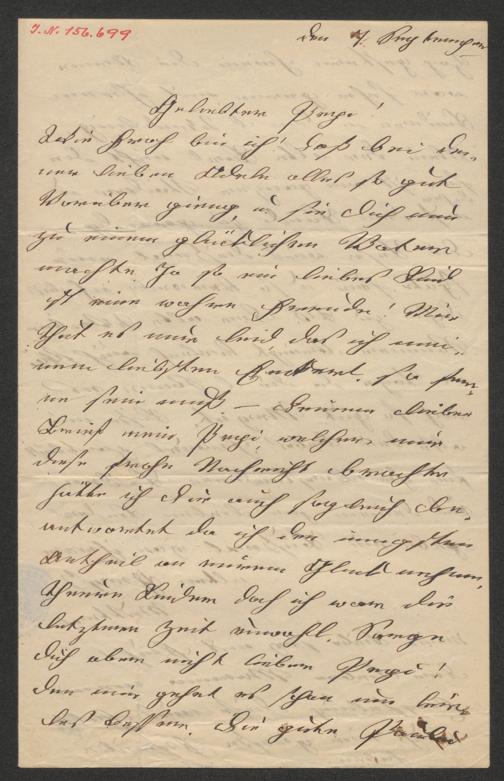 I.N. 156.699
den 7. September
Geliebter Pepi!
Wie froh bin ich! daß bei dei-
ner lieben Adele alles so gut
vorüber gieng, u sie Dich nun
zu einem glücklichen Vatern
machte. Ja so ein liebes Kind
ist eine wahre Freude! Mir
thut es nur leid, das ich mei-
nem liebsten so fer-
ne sein muß. — Deinen lieben
Brief mein Pepi, welcher mir
diese frohe Nachricht brachte
hätte ich Dir auch sogleich be-
antwortet da ich den innigsten
Antheil an eurem Glück nehme,
theure Kinder doch ich war die
letztere Zeit unwohl. Sorge
Dich aber nicht lieber Pepi!
den mir gehet es schon um
des besser. Die gute